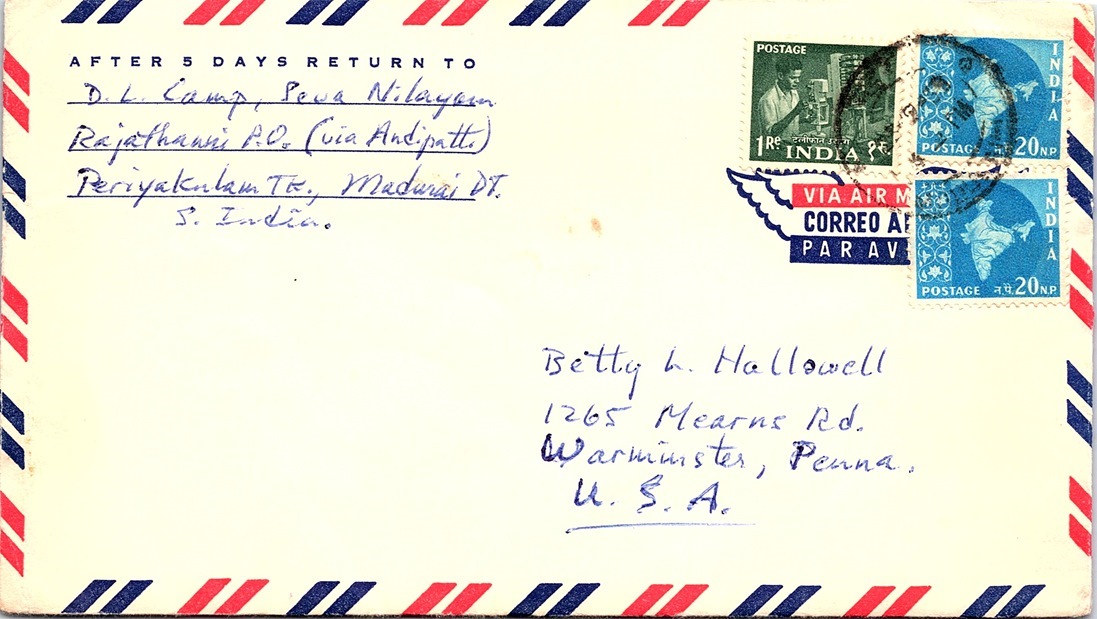 AFTER 5 DAYS RETURN TO
D. L. Camp, Seva Nilayam
Rajathani P.O. (via Andipatti)
Periyakulam TK., Madurai DT.
S. India.
POSTAGE
1 Re
टेलीफोन उद्योग
INDIA १रु.
INDIA
POSTAGE न.पै. 20 N.P.
INDIA
POSTAGE न.पै. 20 N.P.
VIA AIR M
CORREO A
PAR AV
Betty L. Hallowell
1265 Mearns Rd.
Warminster, Penna.
U. S. A.